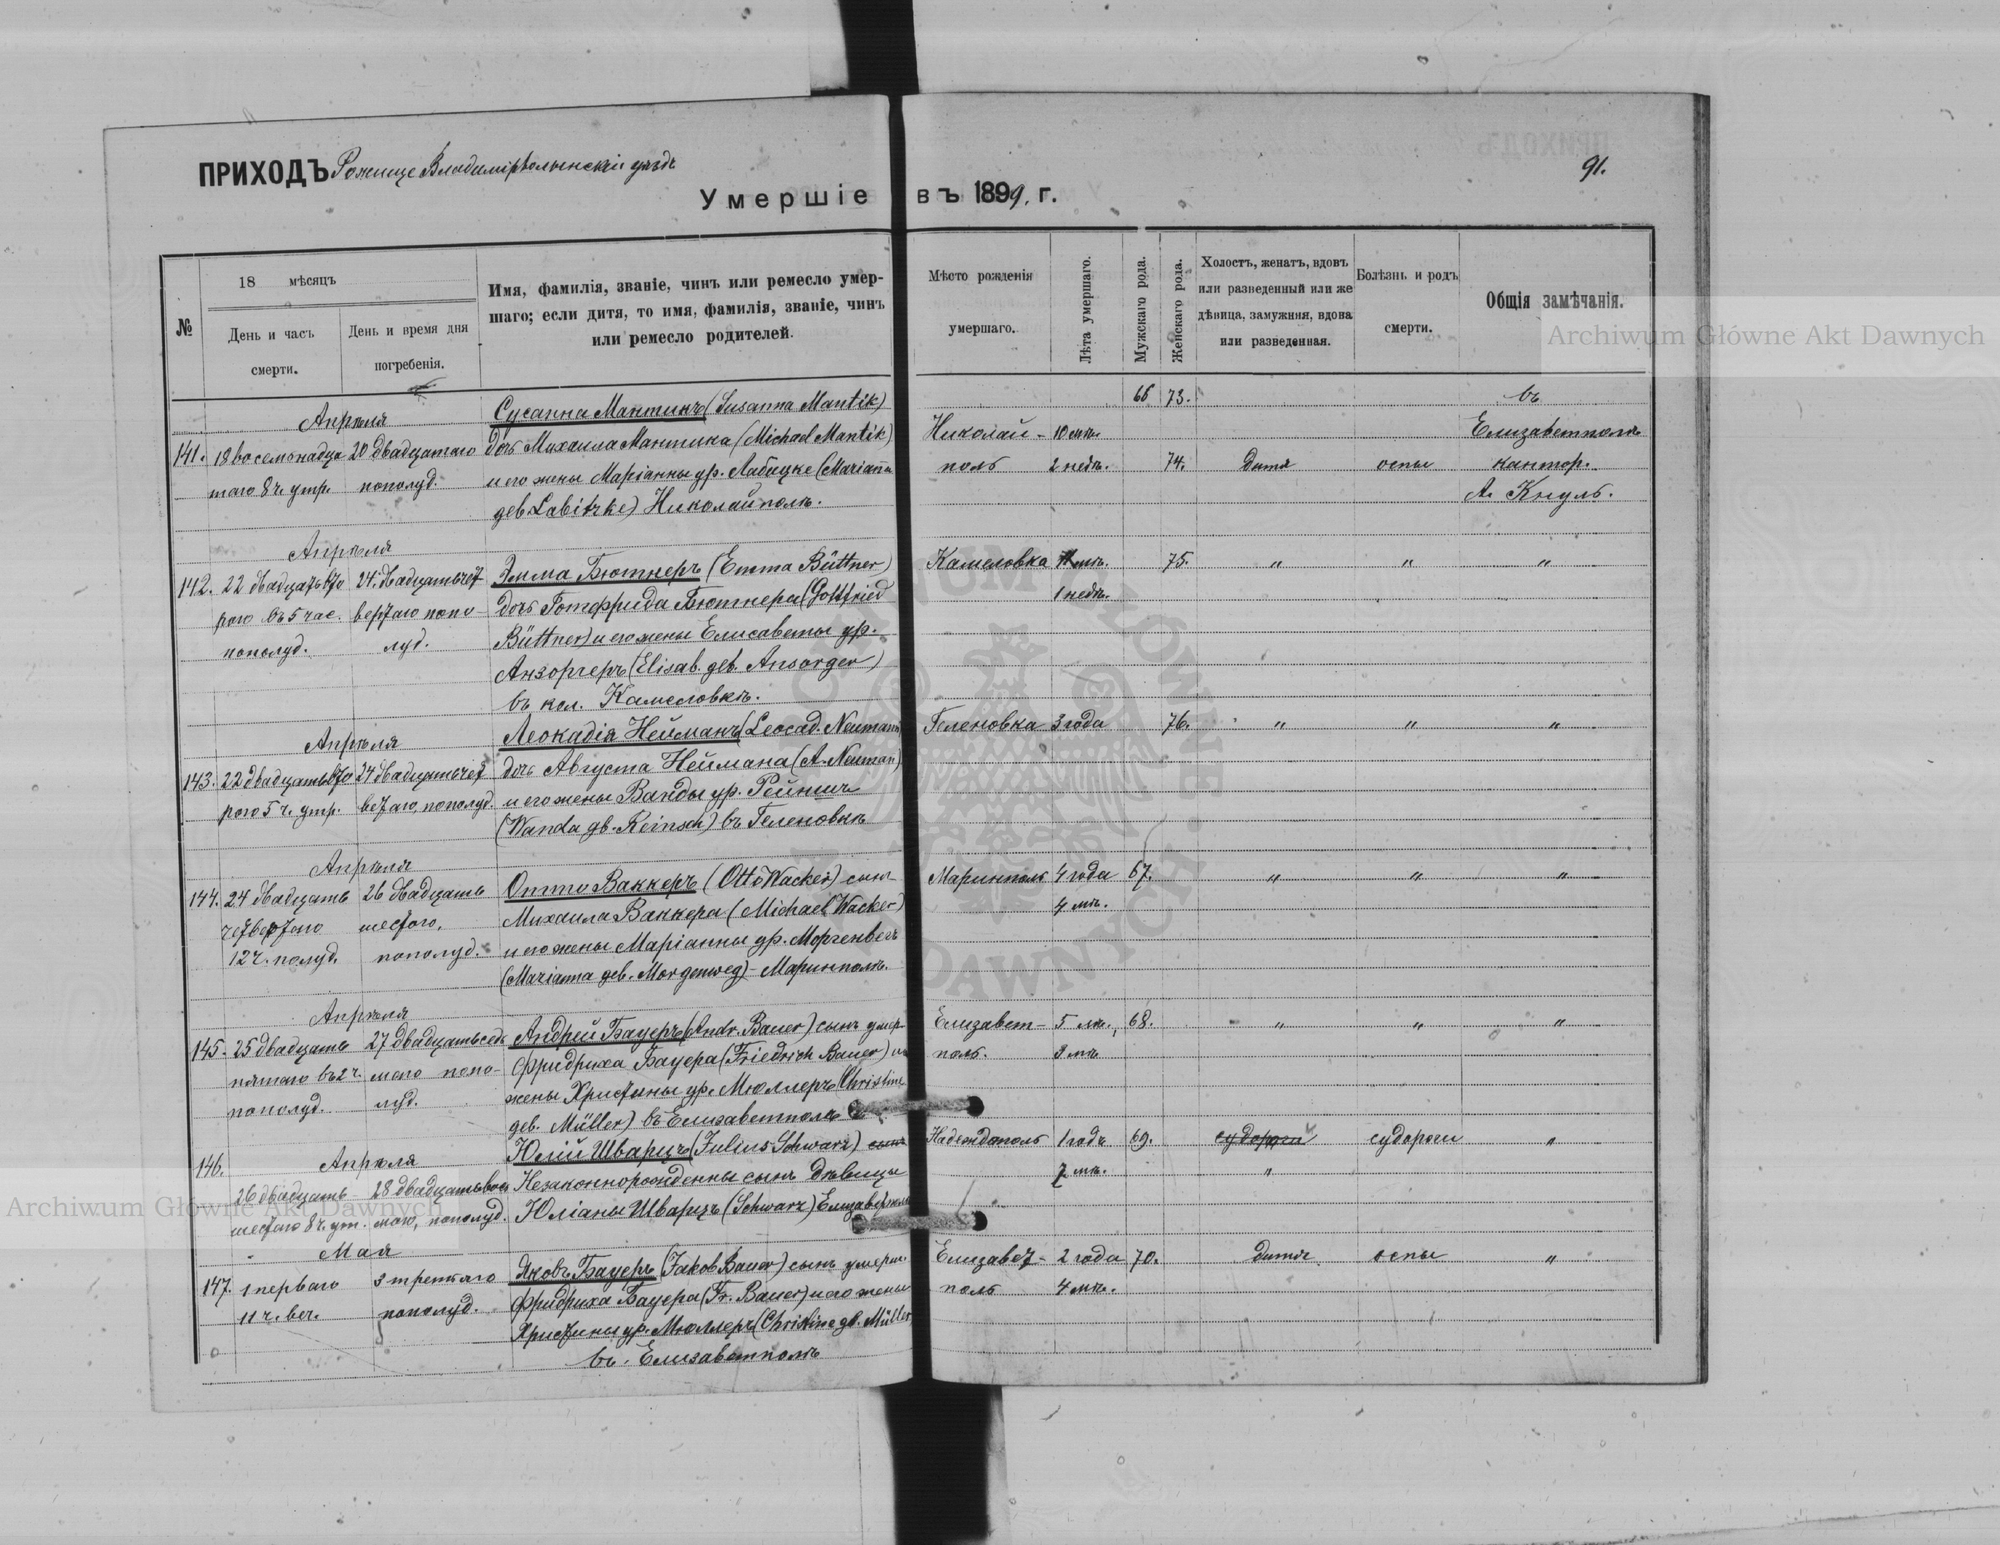 ПРИХОДЪ Рожище Владимірволынскій уѣздъ
91.
Умершіе въ 1899. г.
№
18 мѣсяцъ
День и часъ смерти.
День и время дня погребенія.
Имя, фамилія, званіе, чинъ или ремесло умер-
шаго; если дитя, то имя, фамилія, званіе, чинъ
или ремесло родителей.
Мѣсто рожденія
умершаго.
Лѣта умершаго.
Мужскаго рода.
Женскаго рода.
Холостъ, женатъ, вдовъ
или разведенный или же
дѣвица, замужняя, вдова
или разведенная.
Болѣзнь и родъ
смерти.
Общія замѣчанія.
Archiwum Główne Akt Dawnych
66 73.
Апрѣля Сусанна Мантикъ (Susanna Mantik) въ
141. 18 восемьнадца 20 двадцатаго дочь Михаила Мантика (Michael Mantik) Николай- 10 мѣс. Елизаветполѣ
таго 8 ч. утр. пополуд. и его жены Маріанны ур. Лабицке (Marianna поль 2 недѣ. 74. дитя оспы кантор.
geb Labitzke) Николайполѣ. А. Кнуль.
Апрѣля
142. 22 двадцатьвто 24. двадцатьчет Эмма Бютнеръ (Emma Büttner) Камеловка мѣс. 75. " " "
раго въ 5 час. вертаго попо- дочь Готфрида Бютнера (Gottfried 1 недѣ.
пополуд. луд. Büttner) и его жены Елисаветы ур.
Анзоргеръ (Elisab. geb. Ansorger)
въ кол. Камеловкѣ.
Апрѣля Леокадія Нейманъ (Leocad. Neumann Геленовка 3 года 76. " " "
143. 22 двадцатьвто 24 двадцатьчет дочь Августа Неймана (A. Neuman)
раго 5 ч. утр. вертаго, пополуд. и его жены Ванды ур. Рейншъ
(Wanda gb. Reinsch) въ Геленовкѣ
Апрѣля
144. 24 двадцать 26 двадцать Отто Ваккеръ (Otto Wacker) сынъ Маринполь 4 года 67. " " "
четвертаго шестого, Михаила Ваккера (Michael Wacker) 4 мѣ.
12 ч. полуд. пополуд. и его жены Маріанны ур. Моргенвегъ
(Marianna geb. Morgenweg) - Маринполѣ.
Апрѣля
145. 25 двадцать 27 двадцатьседь Андрей Бауеръ (Andr. Bauer) сынъ умер- Елизавет- 5 лѣ., 68. " " "
пятаго въ 2 ч. маго попо- Фридриха Бауера (Friedrich Bauer) и поль. 3 мѣ
пополуд. луд. жены Христины ур. Мюллеръ (Christine
geb. Müller) въ Елизаветполѣ
146. Апрѣля Юлій Шварцъ (Julius Schwarz) сынъ Надеждополь 1 годъ 69. судороги судороги "
26 двадцать- 28 двадцатьвось Незаконнорожденны сынъ дѣвицы 7 мѣ. "
шестого 8 ч. ут. маго, пополуд. Юліаны Шварцъ (Schwarz) Елизаветполь
Archiwum Główne Akt Dawnych
Мая
147. 1 перваго 3 третяго Яковъ Бауеръ (Jakob Bauer) сынъ умерш. Елизавет- 2 года 70. дитя оспы "
11 ч. веч. пополуд. Фридриха Бауера (Fr. Bauer) и его жены поль 4 мѣ.
Христины ур. Мюллеръ (Christine gb. Müller
въ Елизаветполѣ